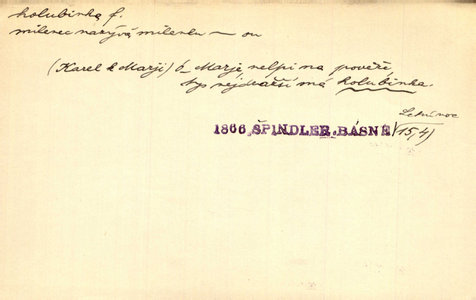 holubinka f.
milenec nazývá milenku – on
(Karel k Marji) ó Marje nelpi na pověře
tys nejdražší má holubinka.
1866 ŠPINDLER, BÁSNĚ
15, 4)